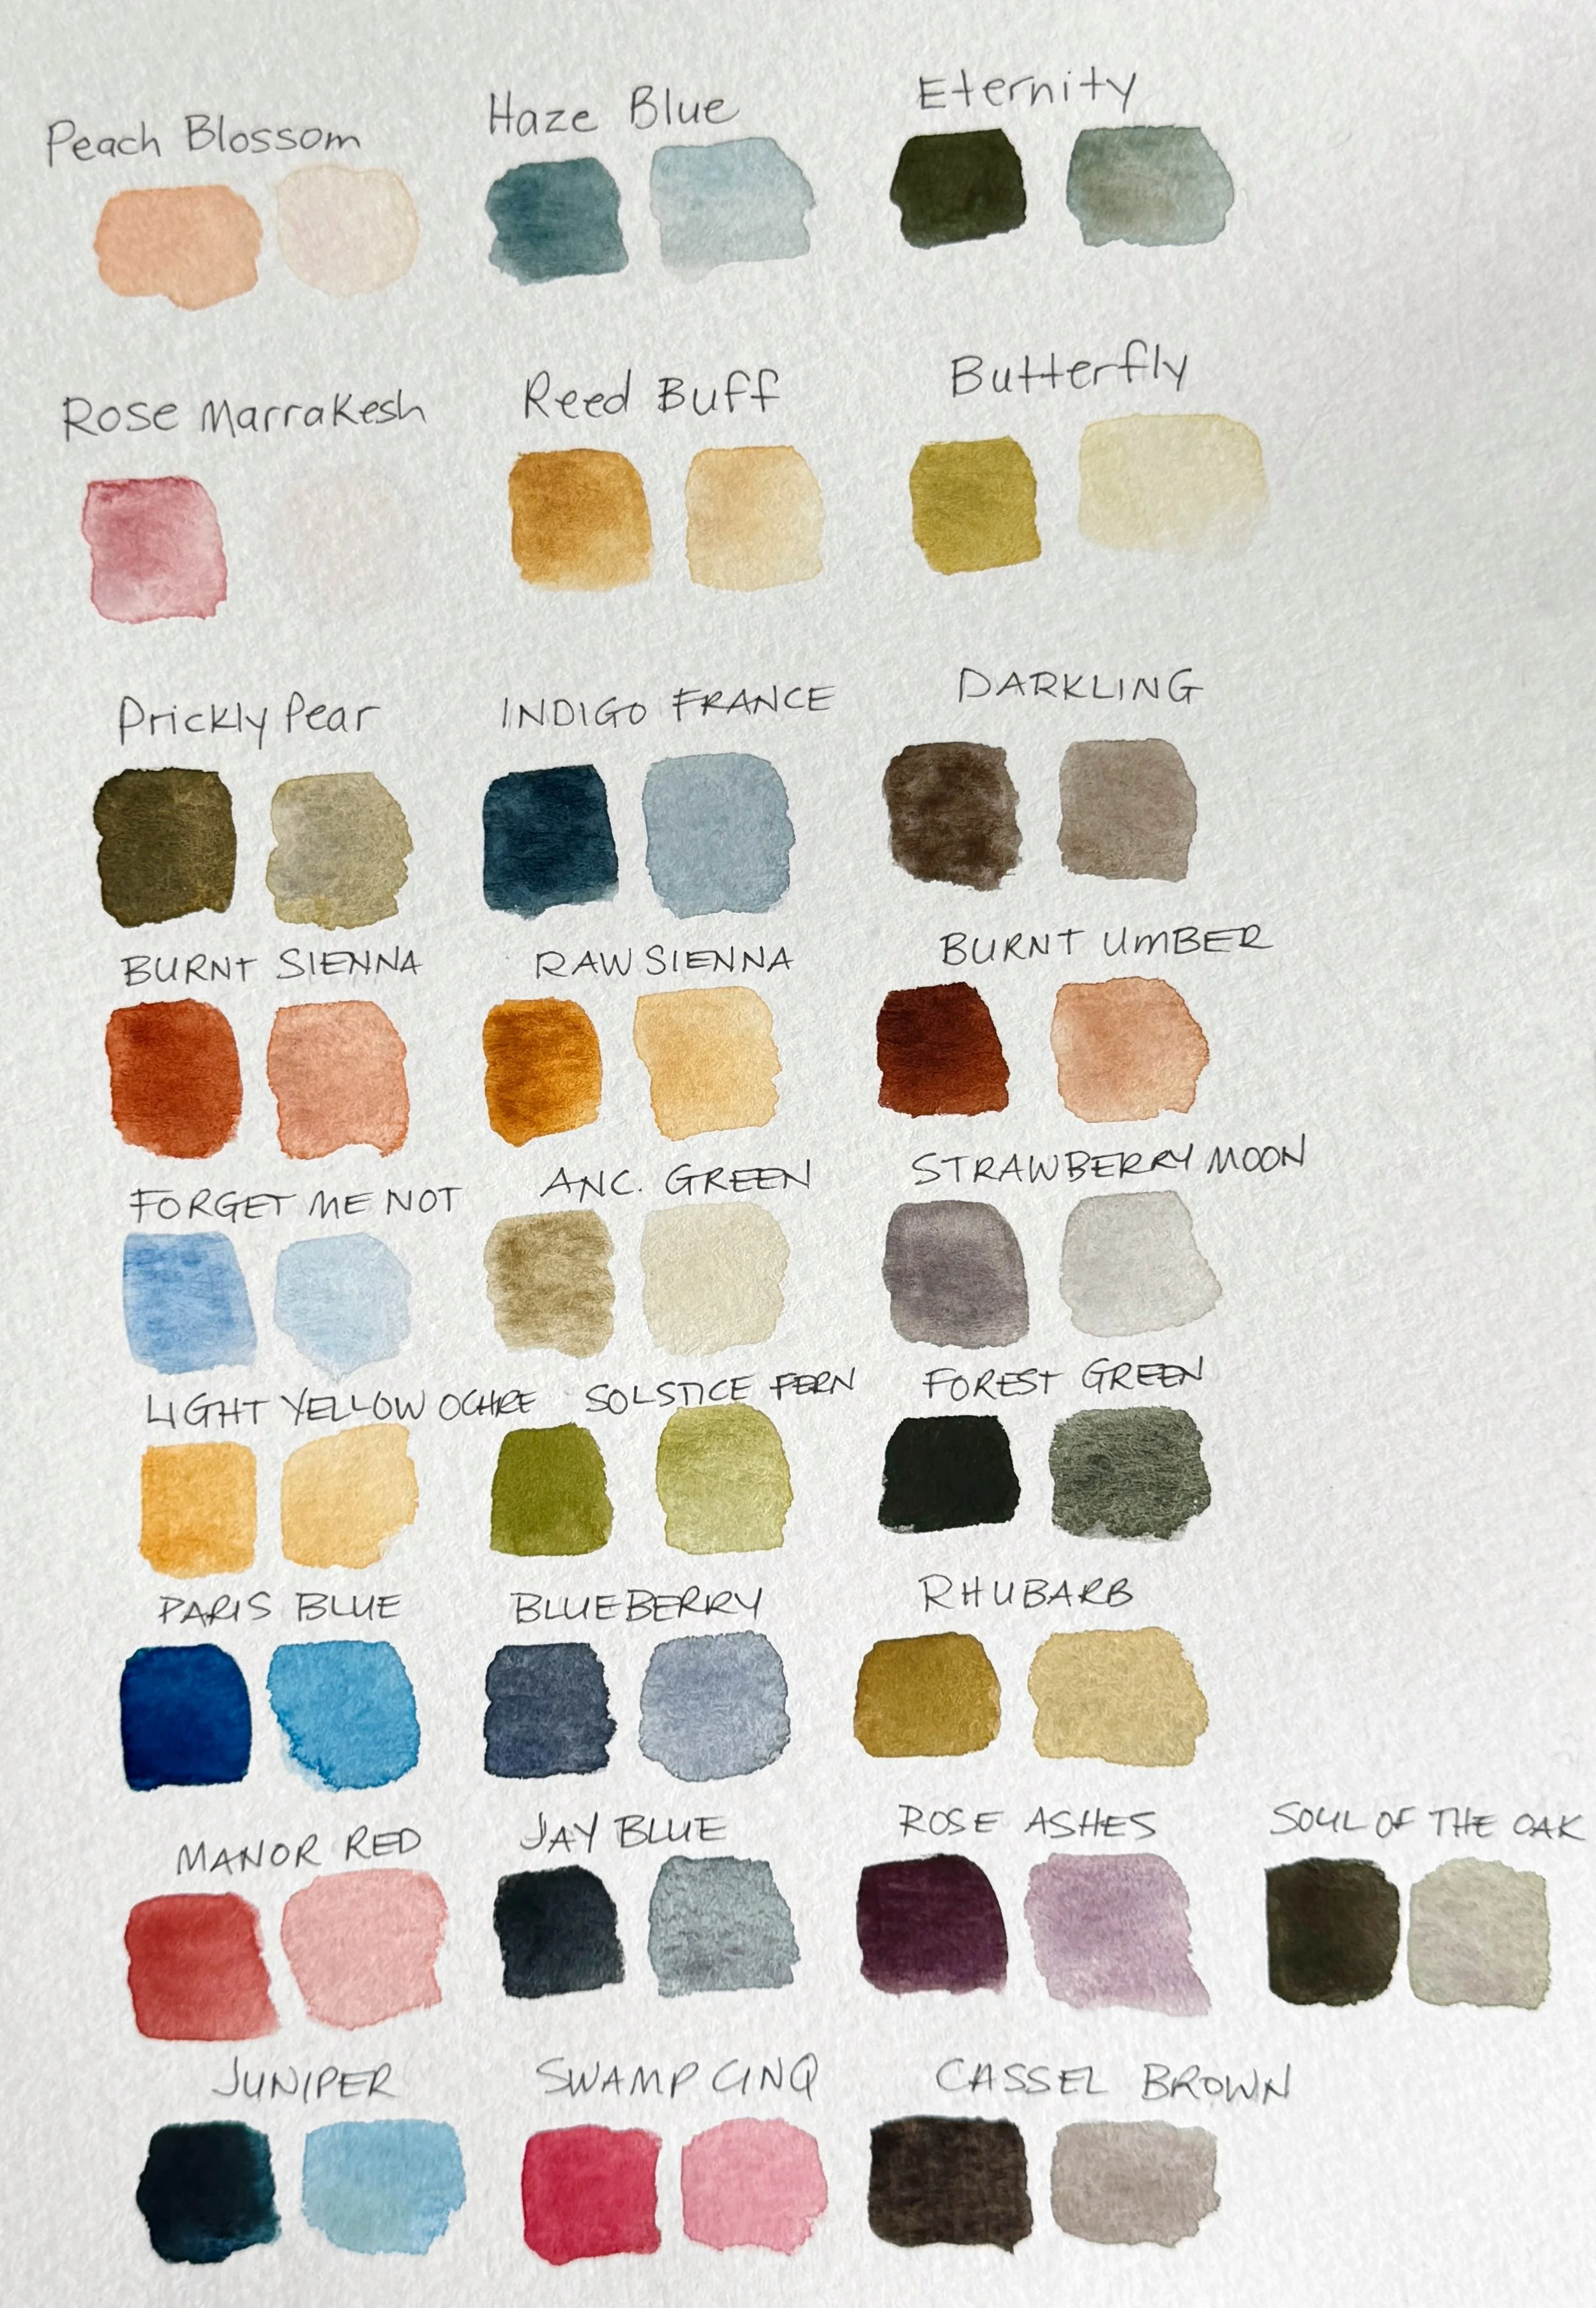 Peach Blossom Haze Blue Eternity
Rose Marrakesh Reed Buff Butterfly
Prickly Pear INDIGO FRANCE DARKLING
BURNT SIENNA RAW SIENNA BURNT UMBER
FORGET ME NOT ANC. GREEN STRAWBERRY MOON
LIGHT YELLOW OCHRE SOLSTICE FERN FOREST GREEN
PARIS BLUE BLUEBERRY RHUBARB
MANOR RED JAY BLUE ROSE ASHES SOUL OF THE OAK
JUNIPER SWAMP CINQ CASSEL BROWN